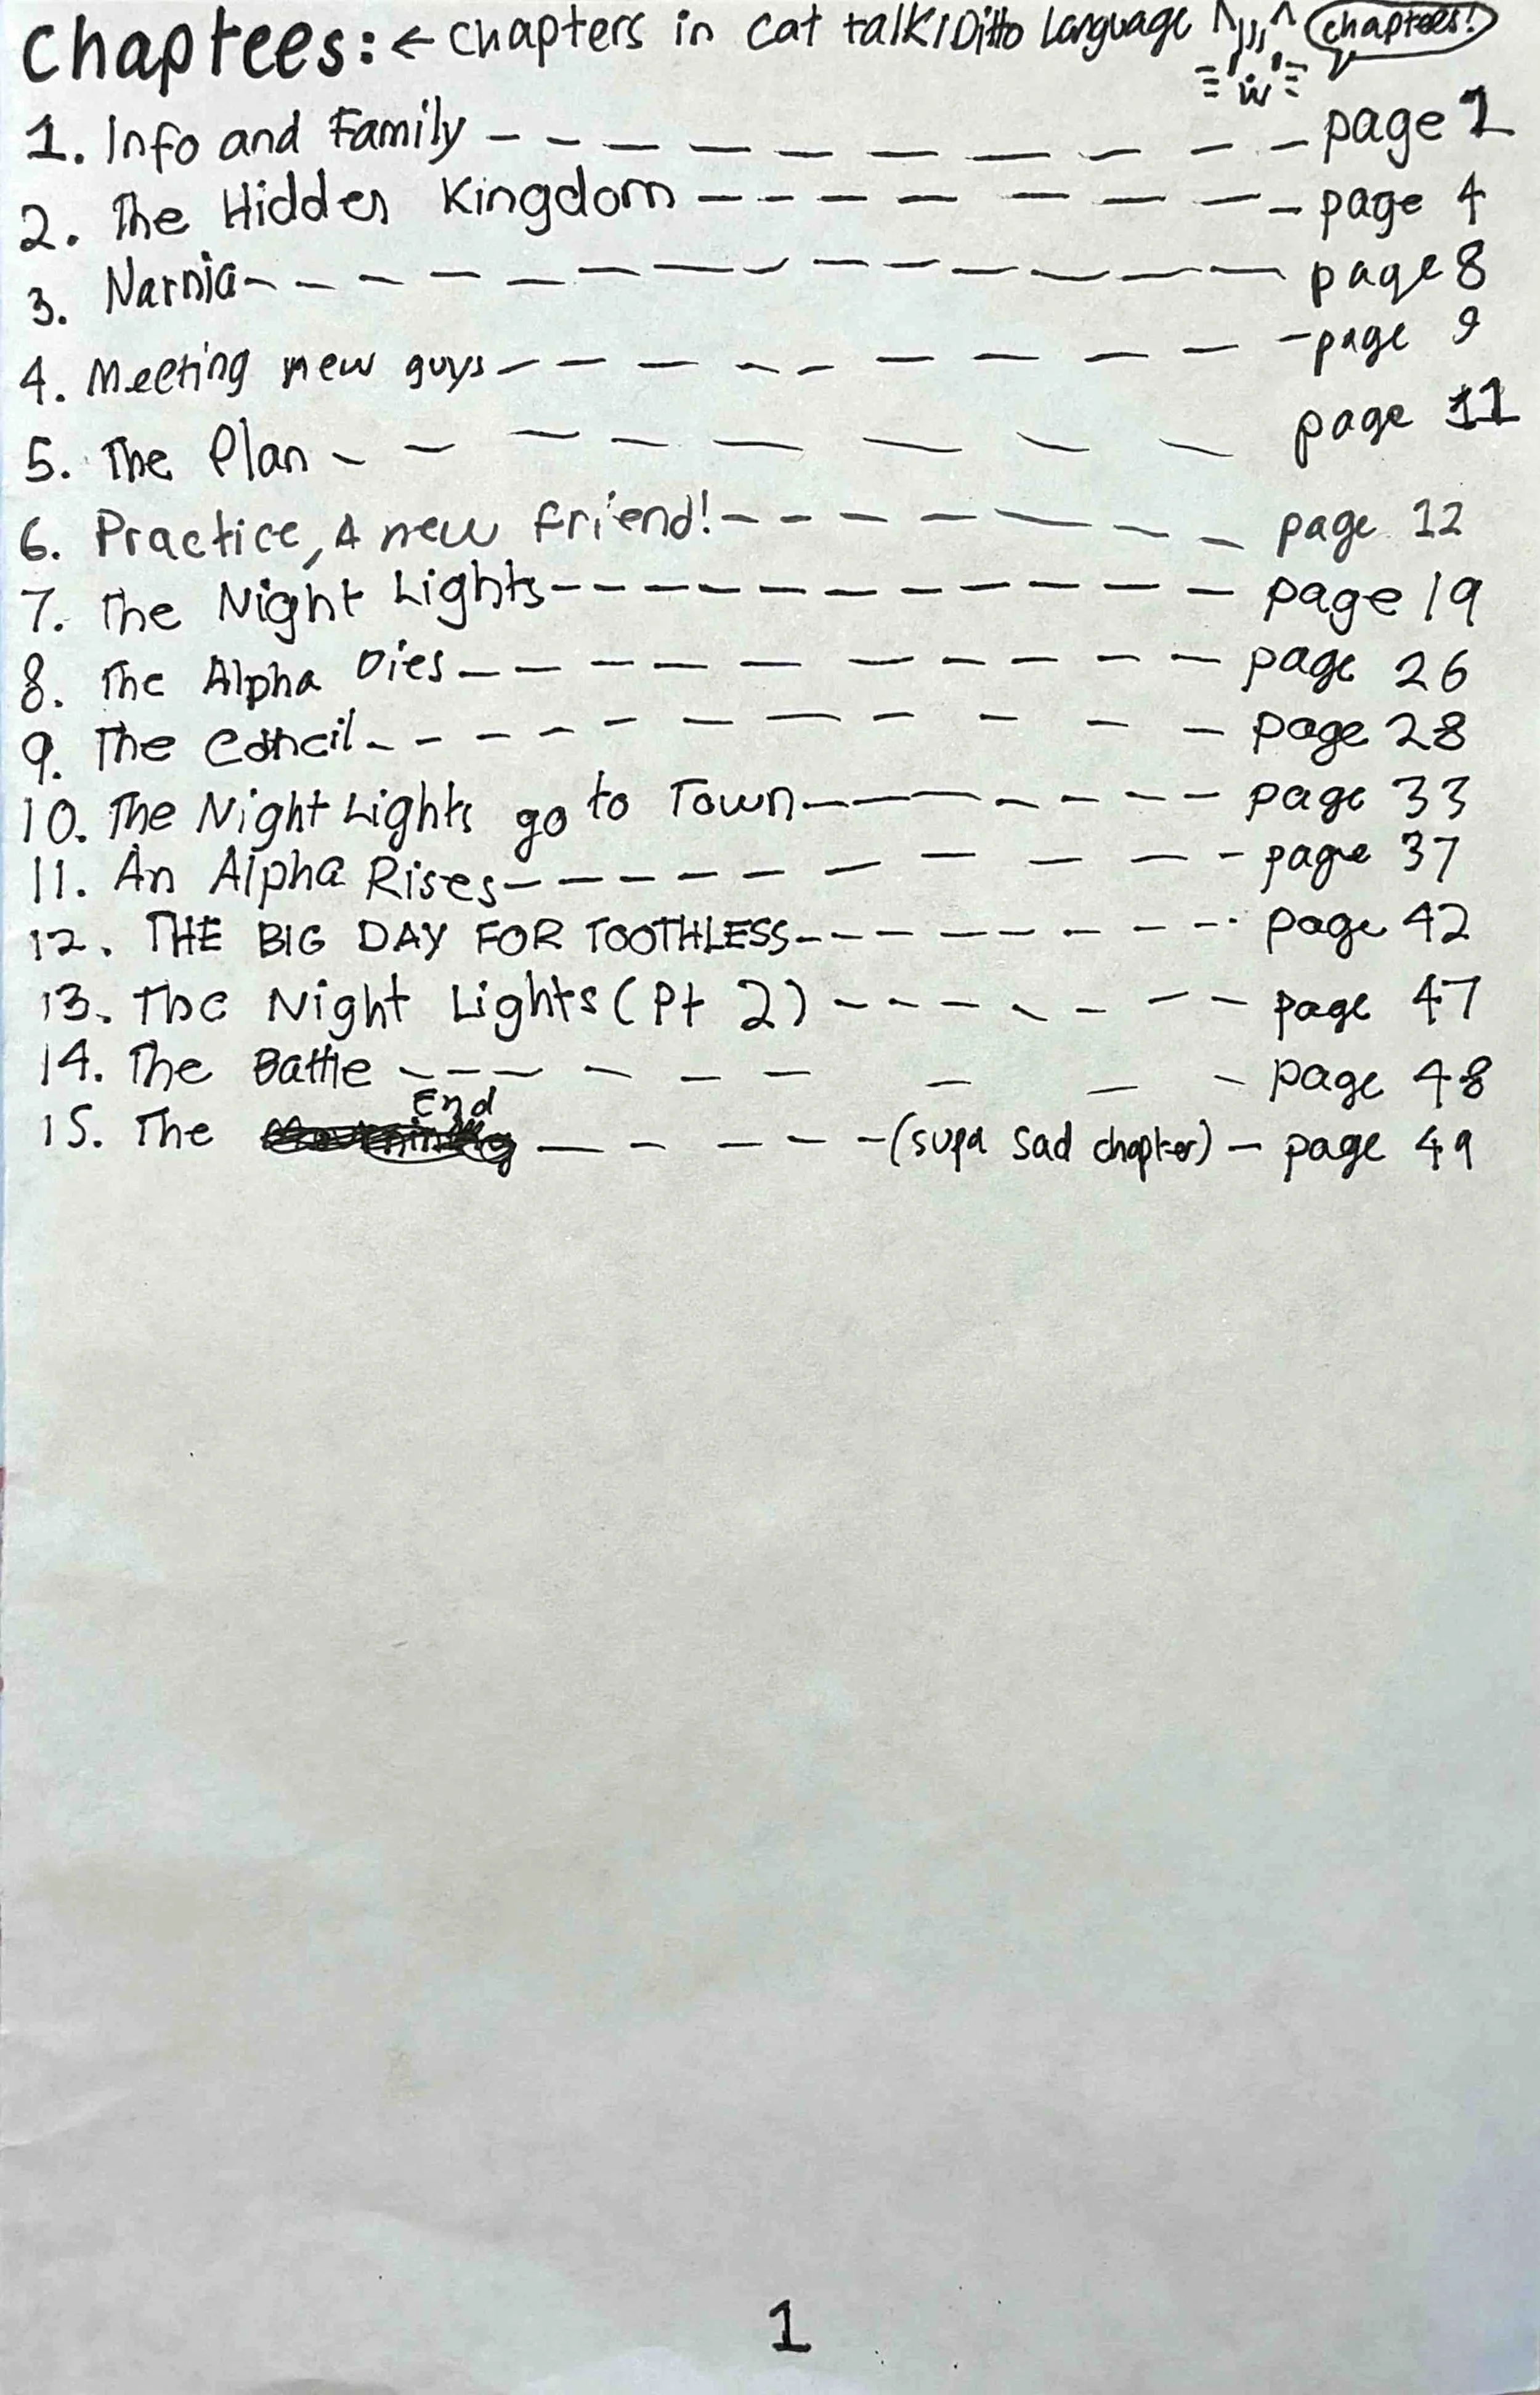 Chaptees: ← Chapters in cat talk/Ditto Language chaptees!
1. Info and Family ---------- page 1
2. The Hidden Kingdom -------- page 4
3. Narnia ------------ page 8
4. Meeting new guys --------- page 9
5. The Plan -------- page 11
6. Practice, A new friend! ------- page 12
7. The Night Lights ------------ page 19
8. The Alpha Dies ---------- page 26
9. The Concil ----------- page 28
10. The Night Lights go to Town -------- page 33
11. An Alpha Rises ---------- page 37
12. THE BIG DAY FOR TOOTHLESS --------- page 42
13. The Night Lights (Pt 2) ------- page 47
14. The Battle --------- page 48
15. The End ----- (supa sad chapter) - page 49
1